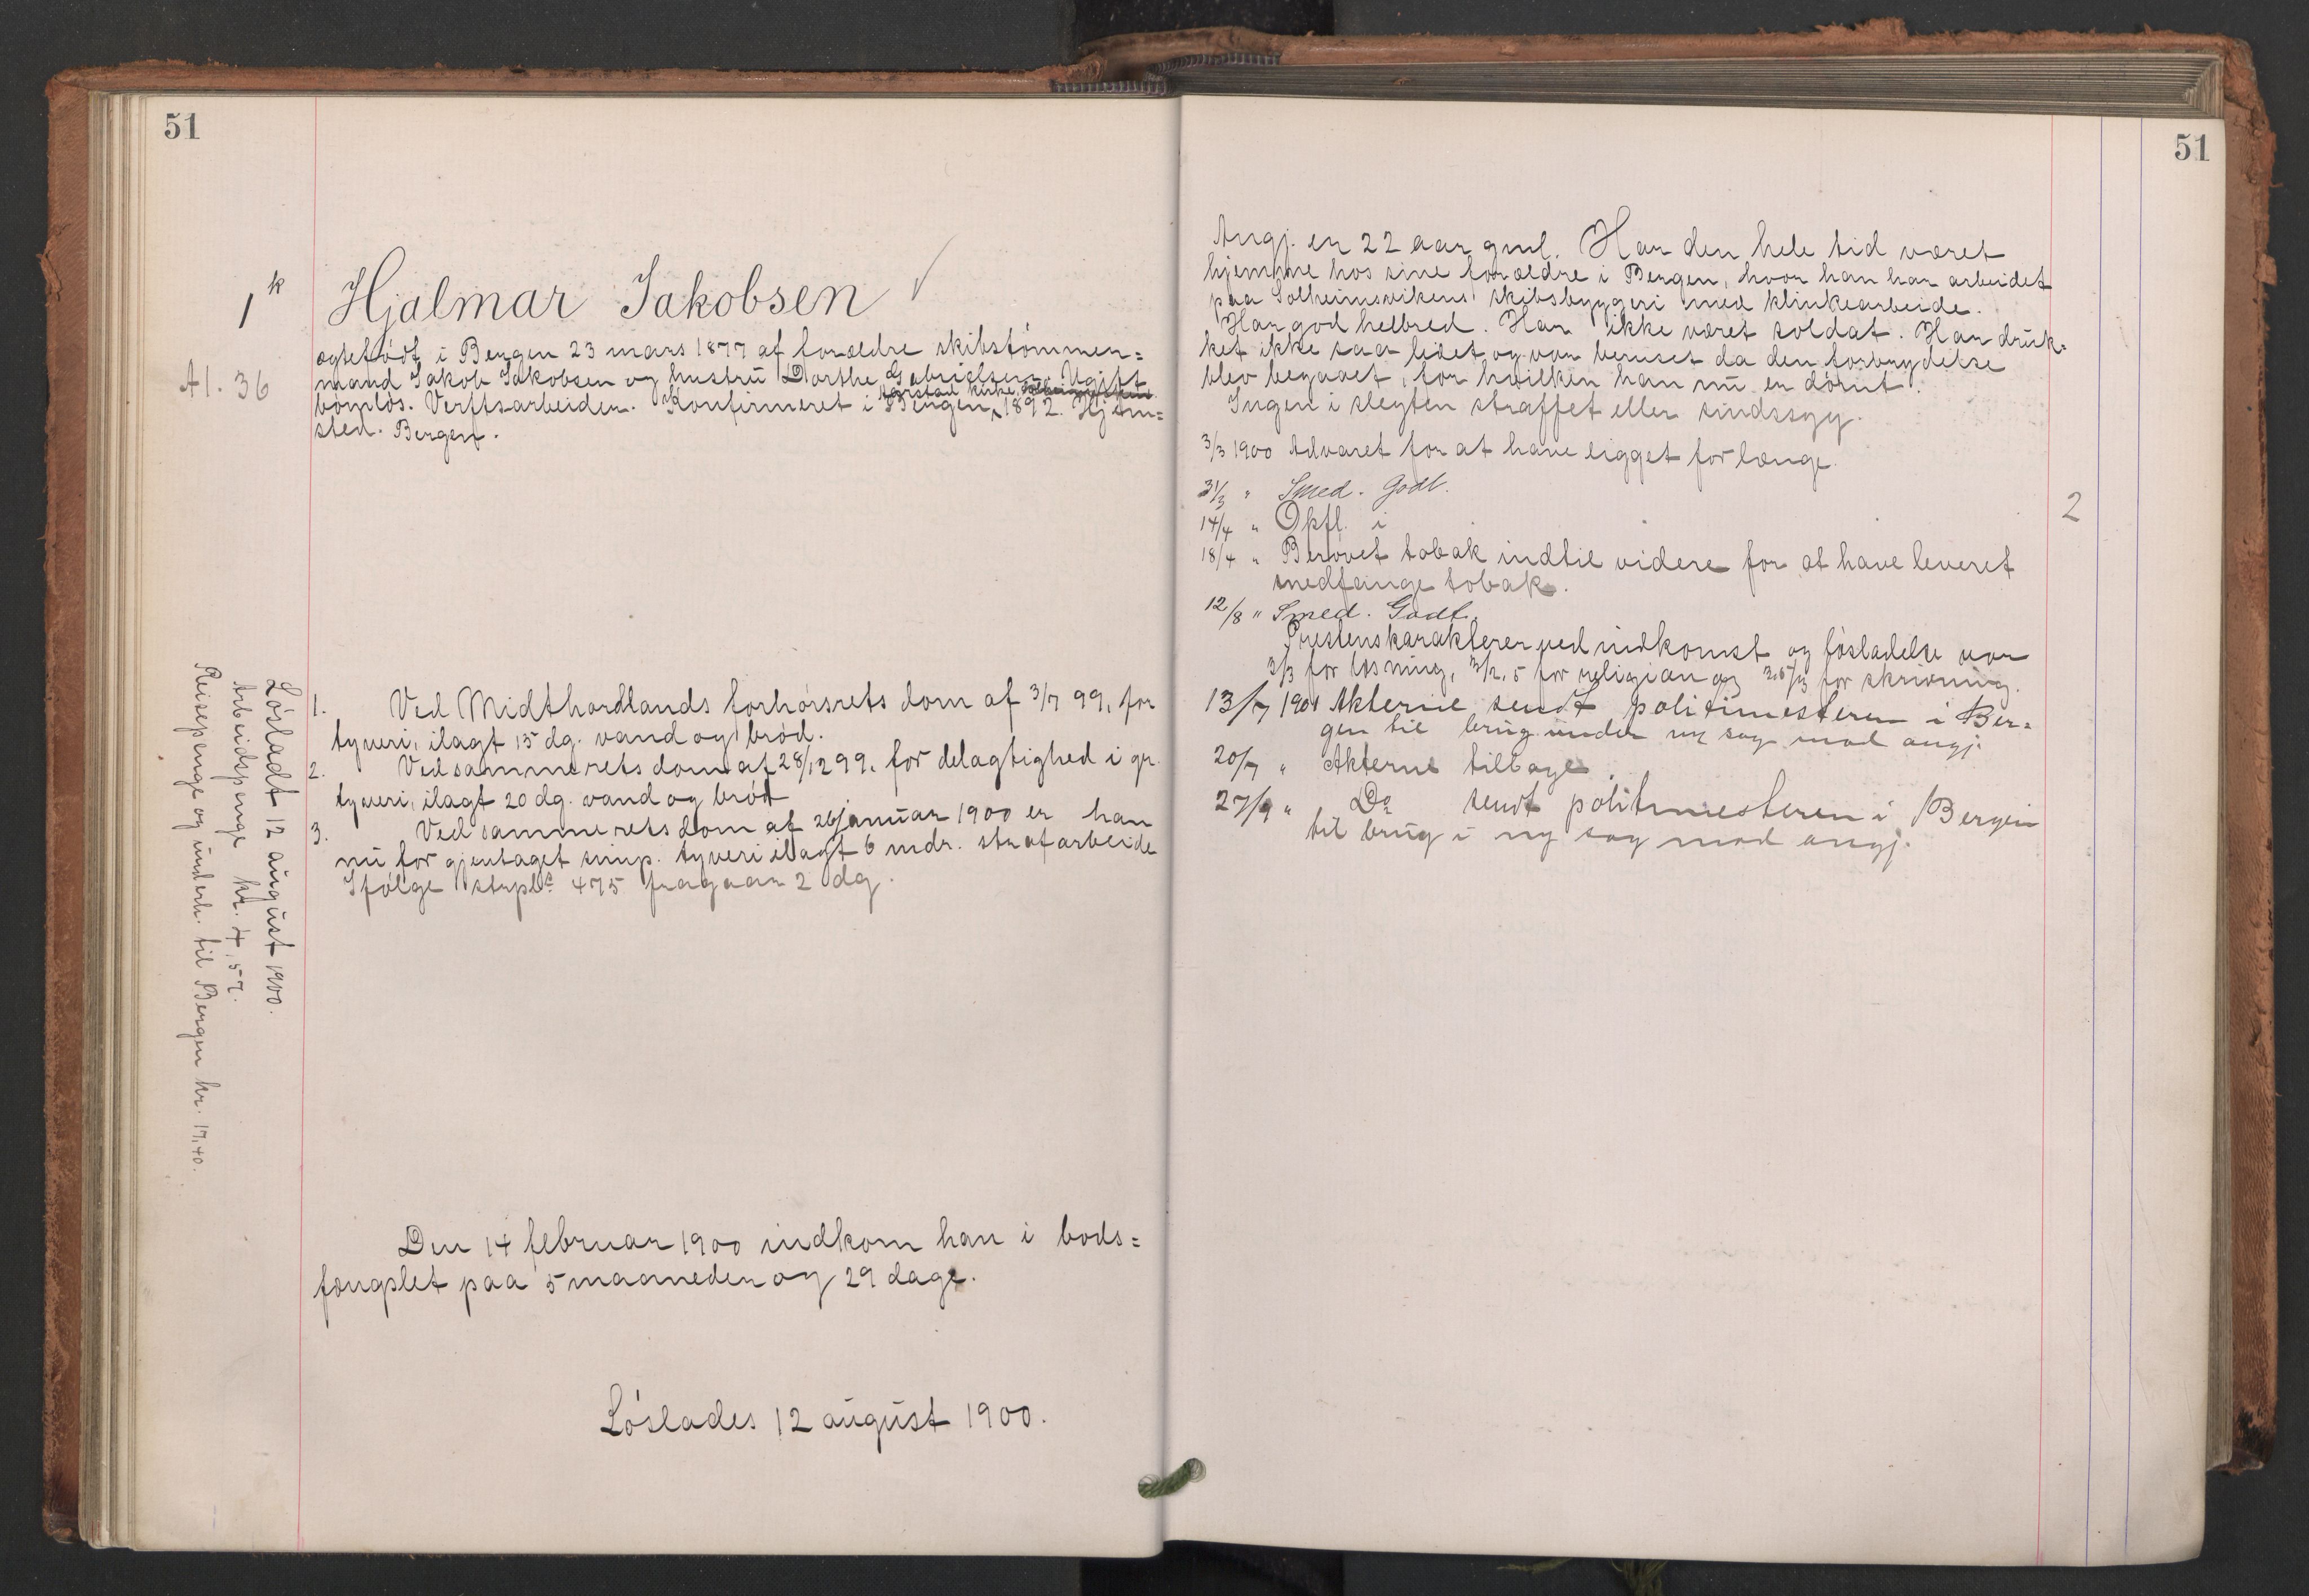 51
1 k
Hjalmar Jakobsen ✓
ægtefødt i Bergen 23 mars 1877 af forældre skibstømmer=
Al. 36
mand Jakob Jakobsen og hustru Dorthe Gabrielsen. Ugift
Aarstad kirke
barnløs. Verftsarbeider. Konfirmeret i Bergen, 1892. Hjem=
sted. Bergen.
1. Ved Midthordlands forhørsrets dom af 3/7 99, for
tyveri, ilagt 15 dg. vand og brød.
2. Ved samme rets dom af 28/12 99. for delagtighed i gr.
tyveri, ilagt 20 dg. vand og brød
3. Ved samme rets dom af 26 januar 1900 er han
nu for gjentaget simp. tyveri ilagt 6 mdr. strafarbeide
Ifølge strpl. 475 fragaar 2 dg.
Løsladt 12 august 1900.
Arbeidspenge kr. 4,57.
Reisepenge og underh. til Bergen kr. 17,40.
Den 14 februar 1900 indkom han i bods=
fængslet paa 5 maaneder og 29 dage.
Løslades 12 august 1900.
51
Angj. er 22 aar gml. Har den hele tid været
hjemme hos sine forældre i Bergen, hvor han har arbeidet
paa Solheimsvikens skibsbyggeri med klinkearbeide.
Har god helbred. Har ikke været soldat. Har druk=
ket ikke saa lidet og var beruset da den forbrydelse
blev begaaet, for hvilken han nu er dømt.
Ingen i slegten straffet eller sindssyg.
3/3 1900 Advaret for at have ligget for længe.
31/3 " Smed. Godt.
14/4 " Opfl. i
2
18/4 " Berøvet tobak indtil videre for at have leveret
medfange tobak.
12/8 " Smed. Godt.
Prestens karakterer ved indkomst og løsladelse var
3/3 for læsning, 3/2,5 for religion og 3,5/3 for skrivning.
13/7 1901 Akterne sendt politimesteren i Ber=
gen til brug under ny sag mod angj.
20/7 " Akterne tilbage.
27/9 " Do sendt politimesteren i Bergen
til brug i ny sag mod angj.